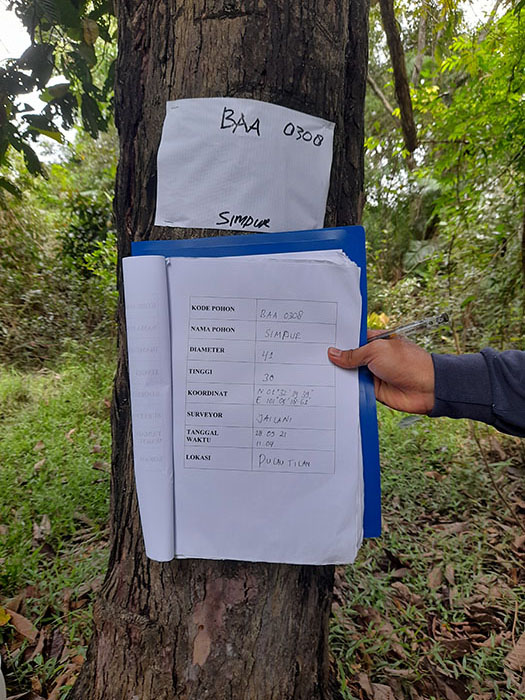 BAA 0308
SIMPUR
KODE POHON BAA 0308
NAMA POHON SIMPUR
DIAMETER 41
TINGGI 30
KOORDINAT
SURVEYOR JAILANI
TANGGAL 28 09 21
WAKTU 11.09
LOKASI PULAU TILAN